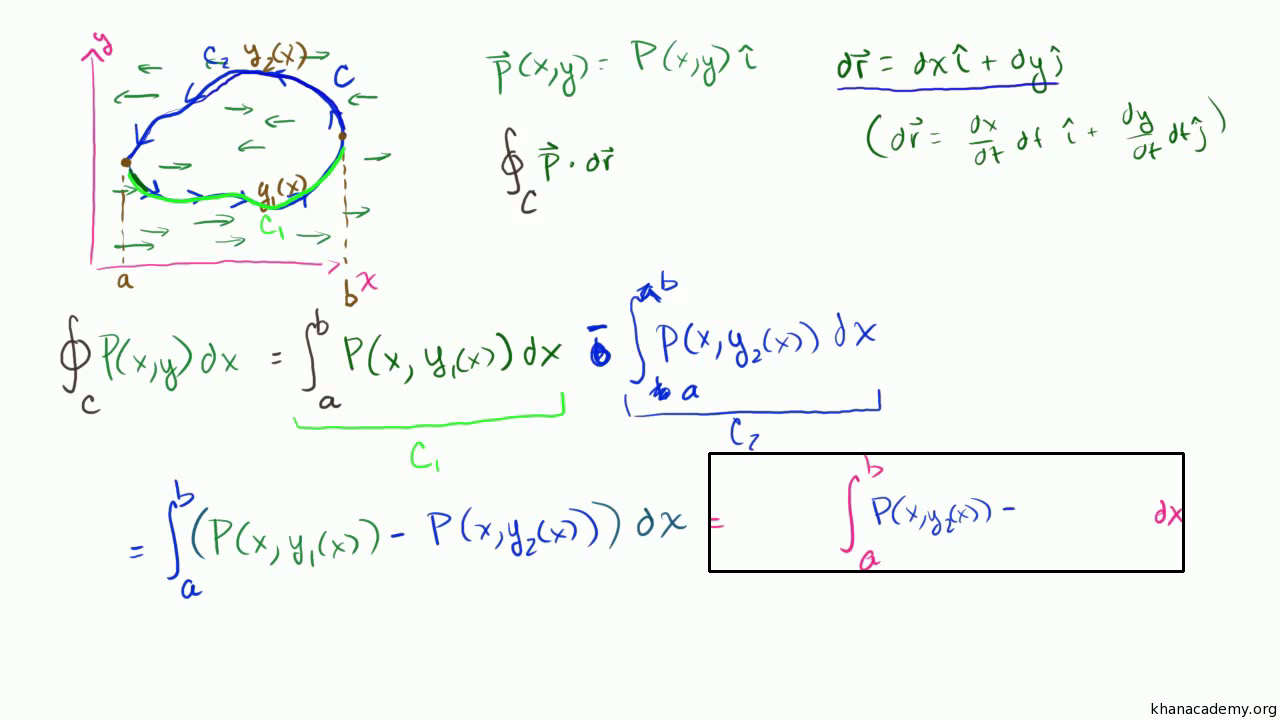 y
C₂ y₂(x) C
P⃗(x,y) = P(x,y) î
dr⃗ = dx î + dy ĵ
(dr⃗ = dx/dt dt î + dy/dt dt ĵ)
∮_C P⃗ · dr⃗
y₁(x)
C₁
a b x
∮_C P(x,y) dx = ∫_a^b P(x, y₁(x)) dx - ∫_a^b P(x, y₂(x)) dx
C₁ C₂
= ∫_a^b (P(x, y₁(x)) - P(x, y₂(x))) dx = ∫_a^b P(x, y₂(x)) - dx
khanacademy.org